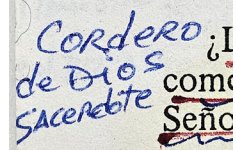 CORDERO
de Dios
SACERDOTE
¡D
como
Seño